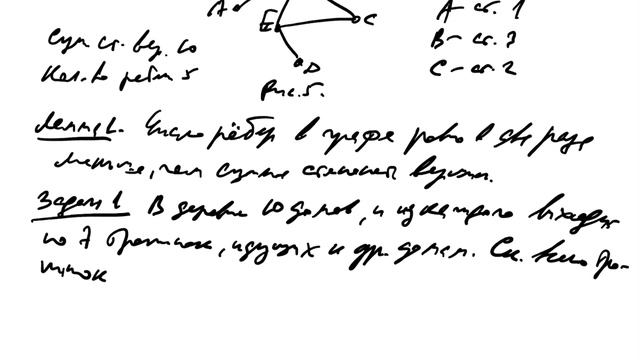 A B C
E
D
Рис. 5.
A - ст. 1
B - ст. 3
C - ст. 2
Сум ст. вер. 10
Кол. во ребер 5
Лемма 1. Число рёбер в графе ровно в два раза
меньше, чем сумма степеней вершин.
Задача 1 В деревне 10 домов, и из каждого выходит
по 7 тропинок, идущих к др. домам. Ск. всего тро-
пинок